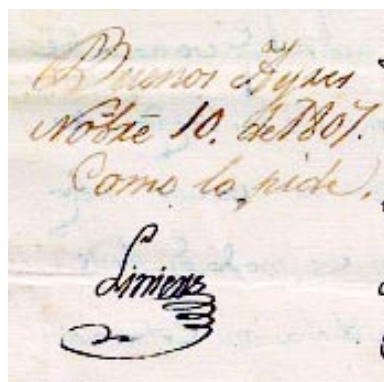 Buenos Ayres
Nobre 10. de 1807.
Como lo pide.
Liniers